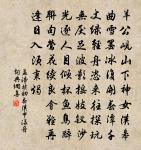 羊公峴山下神女漢皋
曲雪罷冰復開春潭千
丈綠輕舟恣來往探玩
無厭足波影搖妓釵沙
光逐人目傾杯魚鳥醉
聯句鶯花續良會難再
逢日入須秉燭
孟浩然初春漢中漾舟